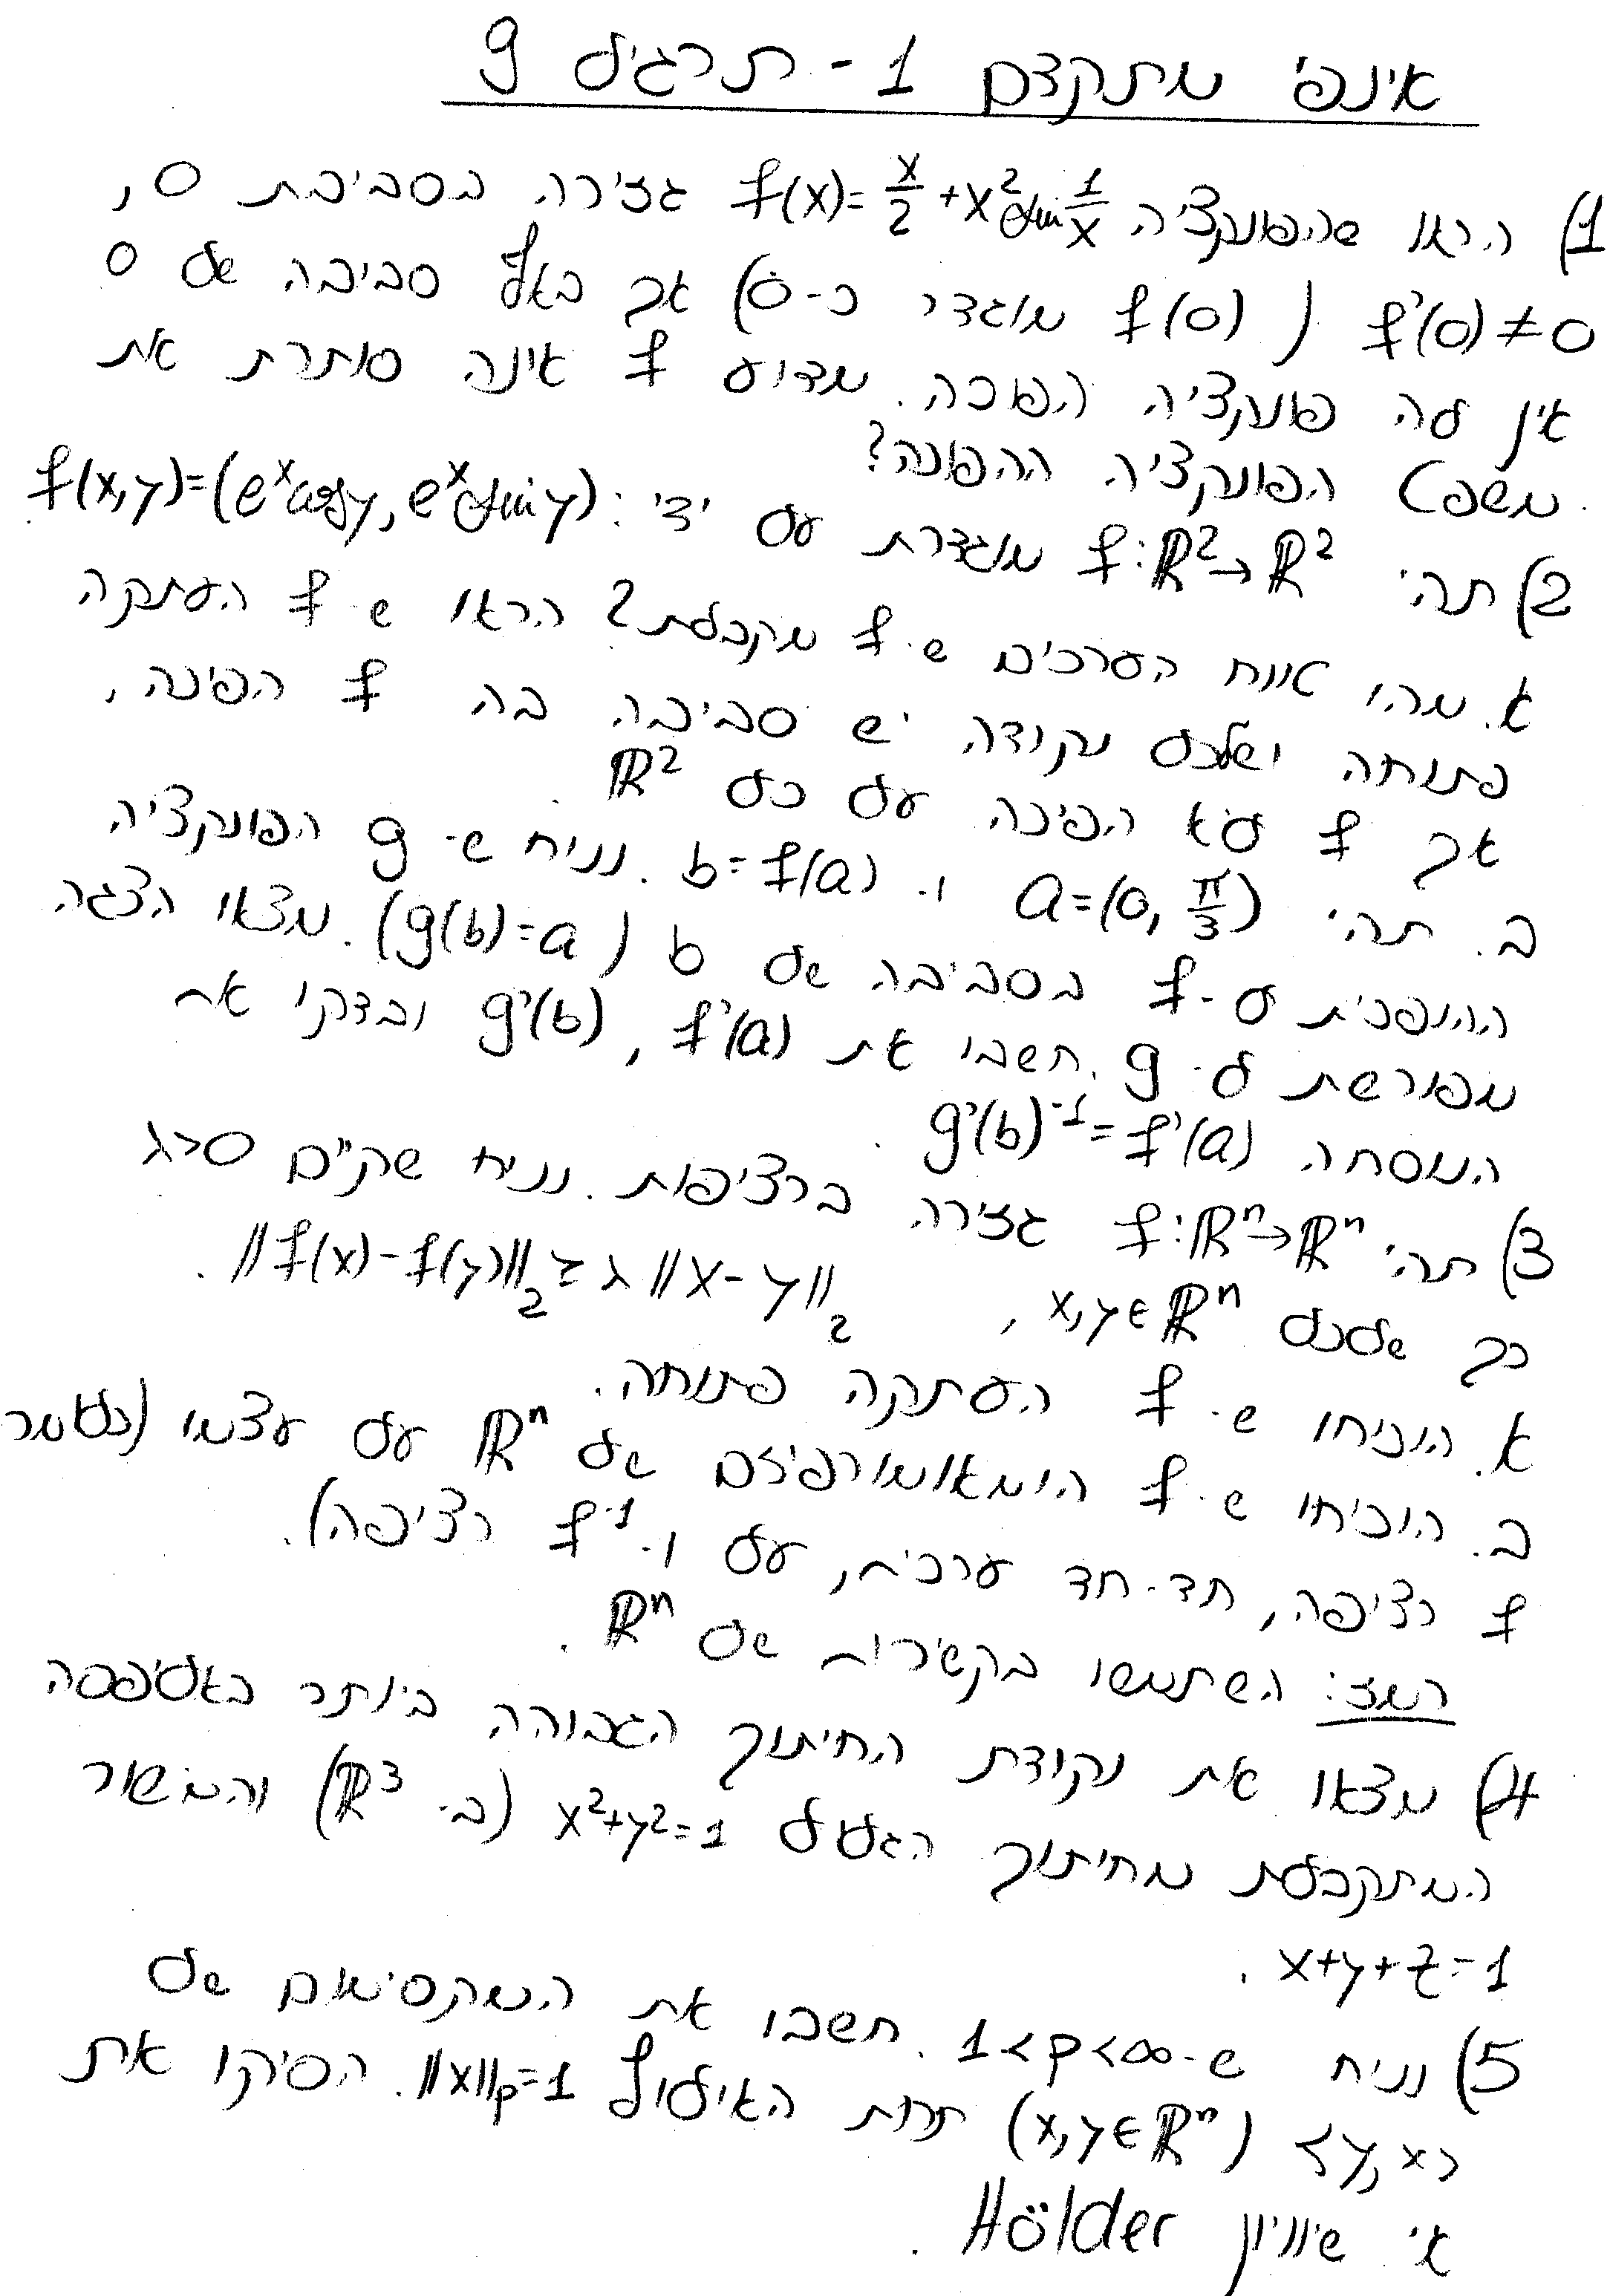 אינפי מתקדם 1 - תרגיל 9
1) הראו שהפונקציה f(x)=x/2+x²sin 1/x גזירה בסביבת 0,
f'(0)≠0 (f(0) מוגדר כ-0) אך באף סביבה של 0
אין לה פונקציה הפוכה. מדוע f אינה סותרת את
משפט הפונקציה ההפוכה?
2) תהי f:ℝ²→ℝ² מוגדרת על ידי: f(x,y)=(eˣcosy, eˣsiny).
א. מהו טווח הערכים ש-f מקבלת? הראו ש-f העתקה
פתוחה ושלכל נקודה יש סביבה בה f הפיכה,
אך f לא הפיכה על כל ℝ².
ב. תהי a=(0, π/3) ו- b=f(a). נניח ש-g הפונקציה
ההופכית ל-f בסביבה של b (g(b)=a). מצאו הצגה
מפורשת ל-g. חשבו את f'(a), g'(b) ובדקו את
הנוסחה g'(b)⁻¹=f'(a).
3) תהי f:ℝⁿ→ℝⁿ גזירה ברציפות. נניח שקיים λ>0
כך שלכל x,y∈ℝⁿ, ||f(x)-f(y)||₂≥λ||x-y||₂.
א. הוכיחו ש-f העתקה פתוחה.
ב. הוכיחו ש-f הומאומורפיזם של ℝⁿ על עצמו (כלומר
f רציפה, חד-חד ערכית, על ו-f⁻¹ רציפה).
רמז: השתמשו בקשירות של ℝⁿ.
4) מצאו את נקודת החיתוך הגבוהה ביותר באליפסה
המתקבלת מחיתוך הגליל x²+y²=1 (ב-ℝ³) והמישור
x+y+z=1.
5) נניח ש-1<p<∞. חשבו את המקסימום של
<y,x> (x,y∈ℝⁿ) תחת האילוץ ||x||ₚ=1. הסיקו את
אי שוויון Hölder.